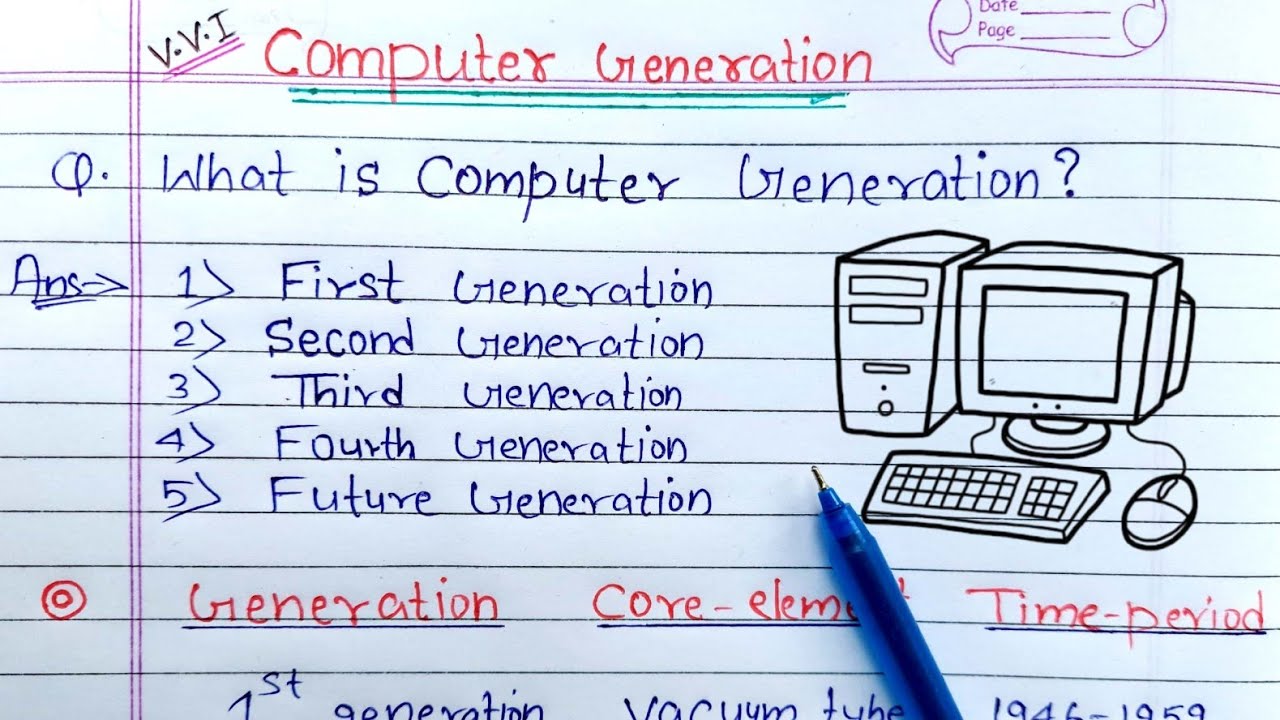 Date
Page
V.V.I
Computer Generation
Q. What is Computer Generation?
Ans→ 1) First Generation
2) Second Generation
3) Third Generation
4) Fourth Generation
5) Future Generation
Generation Core-element Time-period
1st generation vacuum tube 1946-1959